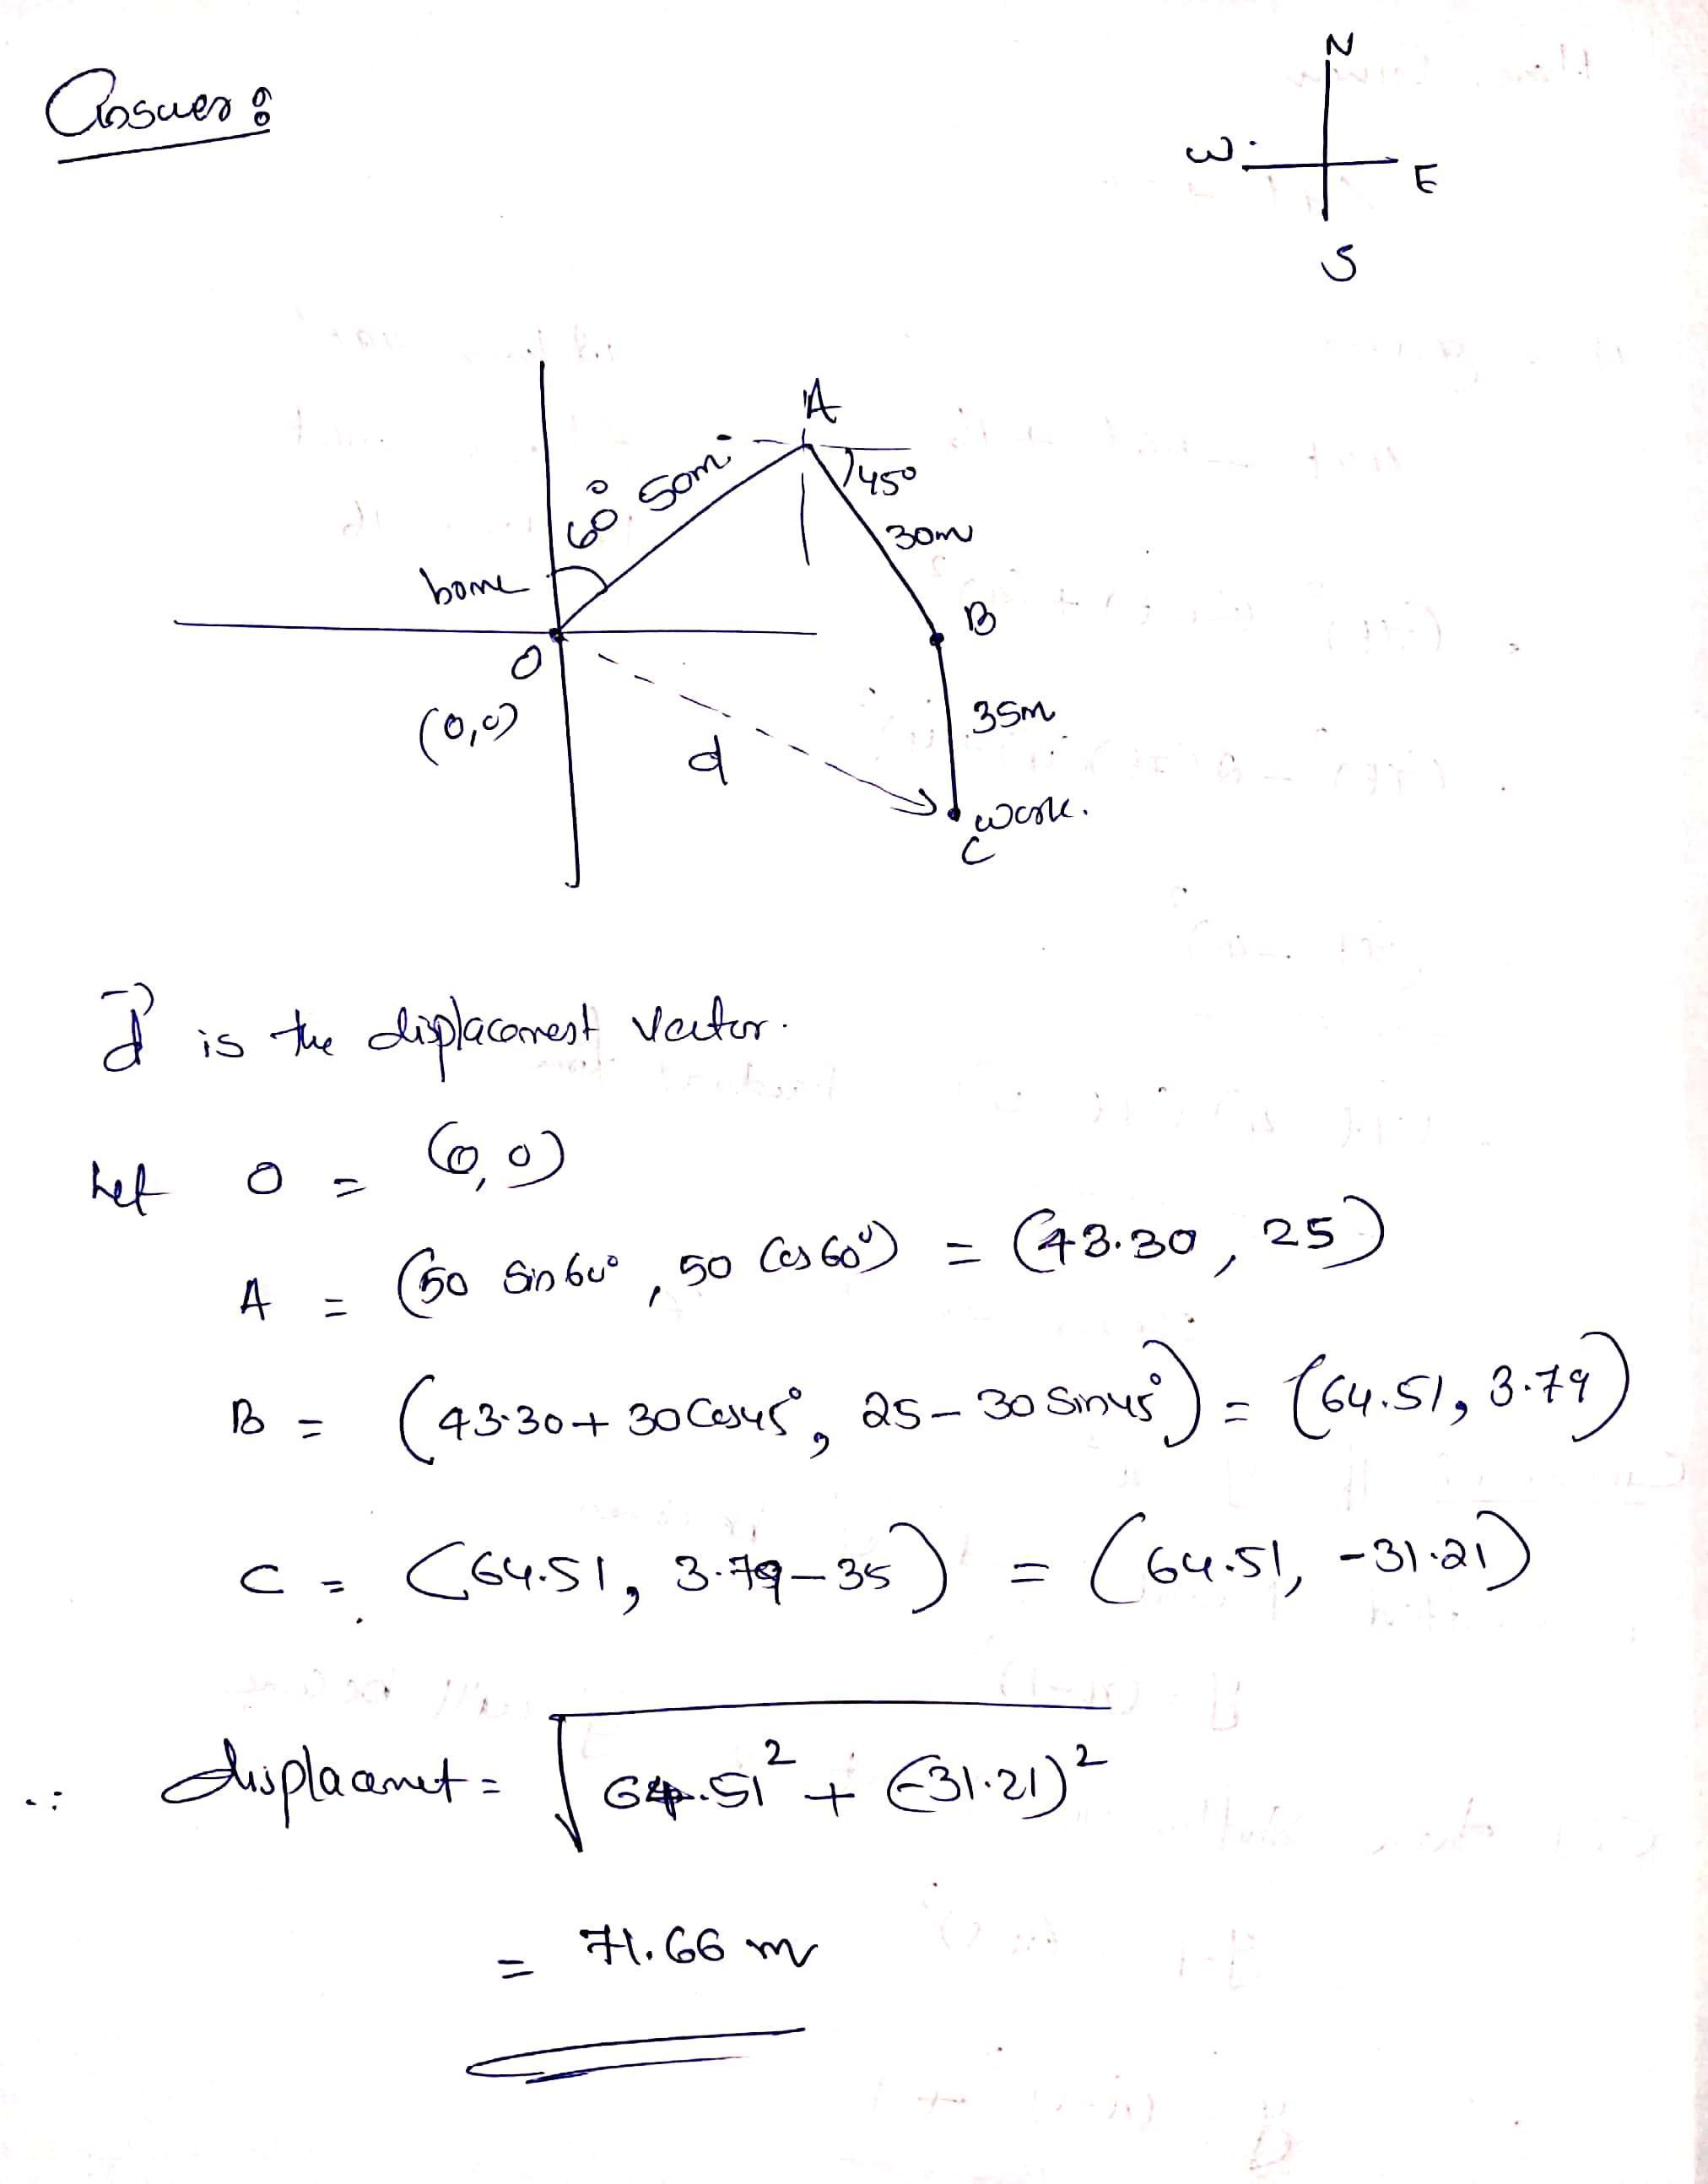 Answer:
N
W
E
S
A
60° 50m
45°
30m
home
B
O
(0,0)
35m
d
work.
C
d⃗ is the displacement vector.
Let O = (0,0)
A = (50 Sin60°, 50 Cos60°) = (43.30, 25)
B = (43.30 + 30Cos45°, 25 - 30Sin45°) = (64.51, 3.79)
C = (64.51, 3.79 - 35) = (64.51, -31.21)
∴ displacemet = √64.51² + (-31.21)²
= 71.66 m